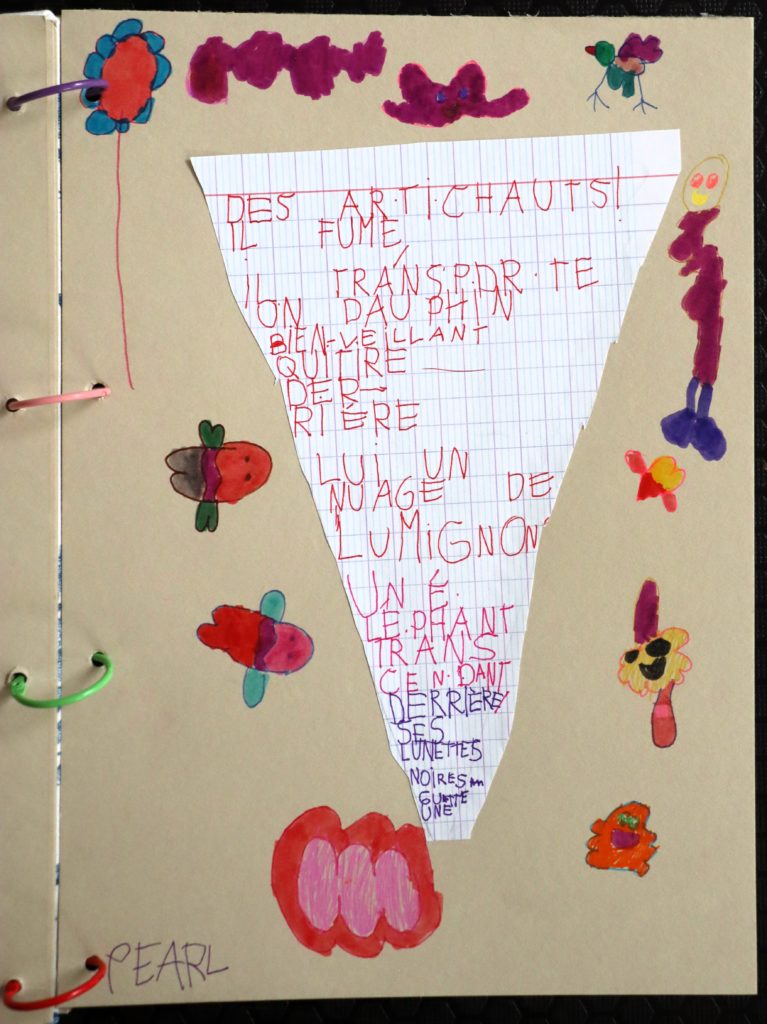 DES ARTICHAUTS!
IL FUME
IL TRANSPOR-TE
UN DAUPHIN
BIEN-VEILLANT
QUI TIRE
DER-
RIÈRE
LUI UN
NUAGE DE
LUMIGNONS
UN É-
LÉ-PHANT
TRANS
CEN-DANT
DERRIÈRE
SES
LUNETTES
NOIRES
GUETTE
UNE
PEARL